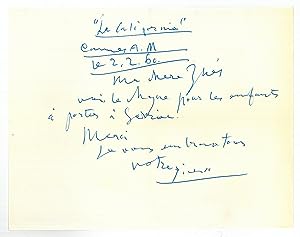 "La Californie"
Cannes A.M
le 2.2.60
Ma chère Inès
voici le chèque pour les enfants
à porter à
Merci
Je vous embrasse tous
votre